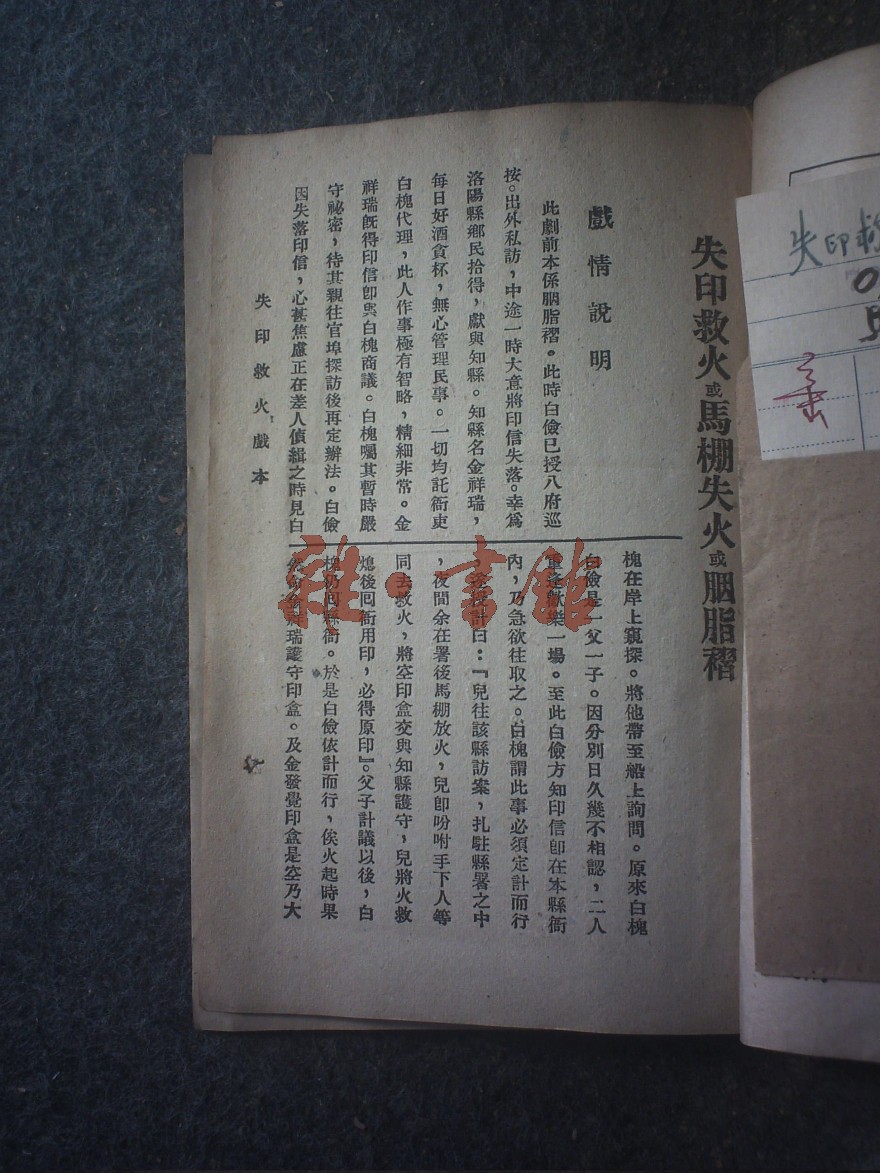 失印救火或馬棚失火或胭脂褶
戲情說明
此劇前本係胭脂褶。此時白儉已授八府巡
按。出外私訪，中途一時大意將印信失落。幸爲
洛陽縣鄉民拾得，獻與知縣。知縣名金祥瑞，
每日好酒貪杯，無心管理民事。一切均託衙吏
白槐代理，此人作事極有智略，精細非常。金
祥瑞旣得印信卽與白槐商議。白槐囑其暫時嚴
守祕密，待其親往官埠探訪後再定辦法。白儉
因失落印信，心甚焦慮正在差人偵緝之時見白
槐在岸上窺探。將他帶至船上詢問。原來白槐
白儉是一父一子。因分別日久幾不相認，二人
重逢歡樂一場。至此白儉方知印信卽在本縣衙
內，乃急欲往取之。白槐謂此事必須定計而行
。遂授計曰：『兒往該縣訪案，扎駐縣署之中
，夜間余在署後馬棚放火，兒卽吩咐手下人等
同去救火，將空印盒交與知縣護守，兒將火救
熄後回衙用印，必得原印』。父子計議以後，白
槐仍回縣衙。於是白儉依計而行，俟火起時果
然命金祥瑞護守印盒。及金發覺印盒是空乃大
失印救火戲本
雜·書館
失印救